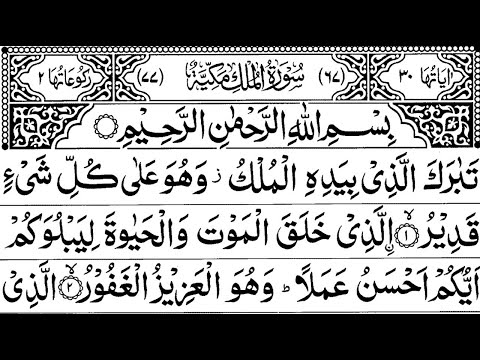 اٰیاتُهَا ٣٠ (٦٧) سُوْرَةُ الْمُلْكِ مَكِّيَّةٌ (٧٧) رُكُوْعَاتُهَا ٢
بِسْمِ اللّٰهِ الرَّحْمٰنِ الرَّحِيْمِ
تَبٰرَكَ الَّذِيْ بِيَدِهِ الْمُلْكُ ز وَهُوَ عَلٰى كُلِّ شَيْءٍ
قَدِيْرُ ۙ﴿١﴾ اۨلَّذِيْ خَلَقَ الْمَوْتَ وَالْحَيٰوةَ لِيَبْلُوَكُمْ
اَيُّكُمْ اَحْسَنُ عَمَلًا ؕ وَهُوَ الْعَزِيْزُ الْغَفُوْرُ ۙ﴿٢﴾ الَّذِيْ